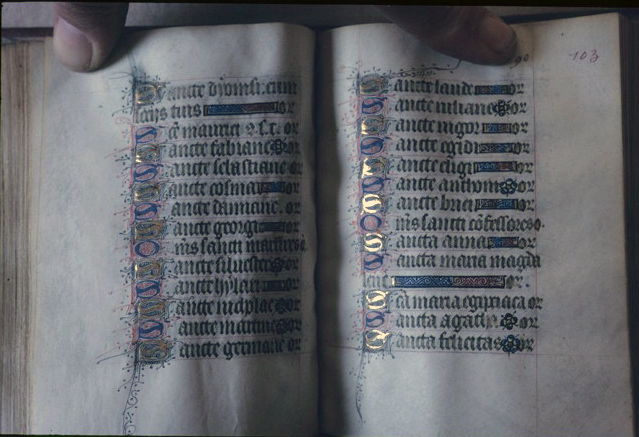 Sancte dionisi. cum
socijs tuis or
Sce maurici 2. s. t. or
Sancte fabiane or
Sancte sebastiane or
Sancte cosma or
Sancte damiane. or
Sancte georgi or
Omnis sancti martires.
Sancte siluester or
Sancte hylari or
Sancte nicholae or
Sancte martine or
Sancte germane or
103
Sancte laude or
Sancte iuliane or
Sancte or
Sancte egidi or
Sancte eligi or
Sancte anthoni or
Sancte or
Omnis sancti cōfessores o.
Sancta anna or
Sancta maria magda
lena or.
Sca maria egipciaca or
Sancta agatha or
Sancta felicitas or